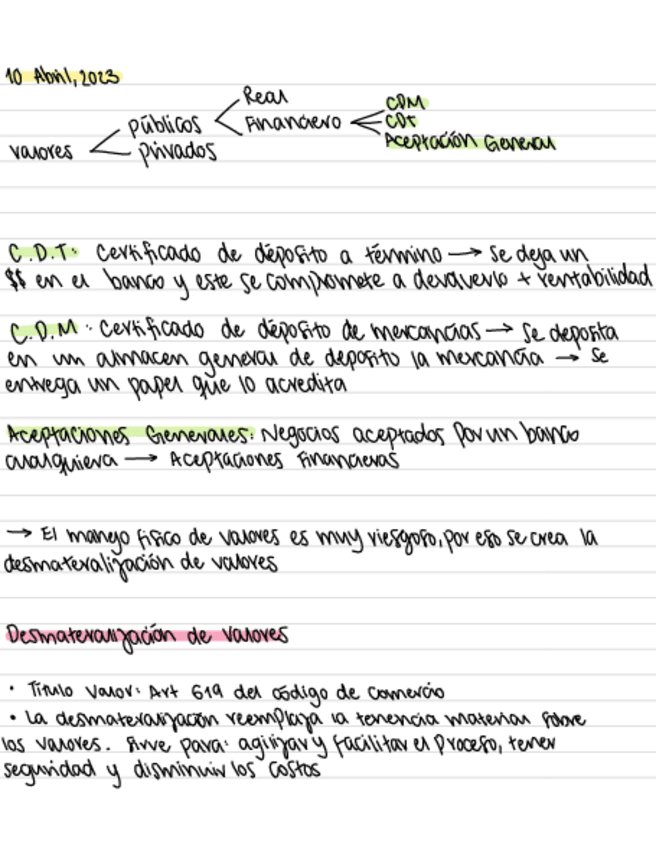 10 Abril, 2023
Real
CDM
públicos
Financiero
CDT
Aceptación General
valores
privados
C.D.T: Certificado de déposito a término → se deja un
$$ en el banco y este se compromete a devolverlo + rentabilidad
C.D.M: Certificado de déposito de mercancias → Se deposita
en un almacen general de deposito la mercancía → se
entrega un papel que lo acredita
Aceptaciones Generales: Negocios aceptados por un banco
cualquiera → Aceptaciones Financieras
→ El manejo fisico de valores es muy riesgoso, por eso se crea la
desmateralización de valores
Desmateralización de valores
· Titulo Valor: Art 619 del código de comercio
· La desmateralización reemplaza la tenencia material sobre
los valores. Sirve para: agilizar y facilitar el proceso, tener
seguridad y disminuir los costos